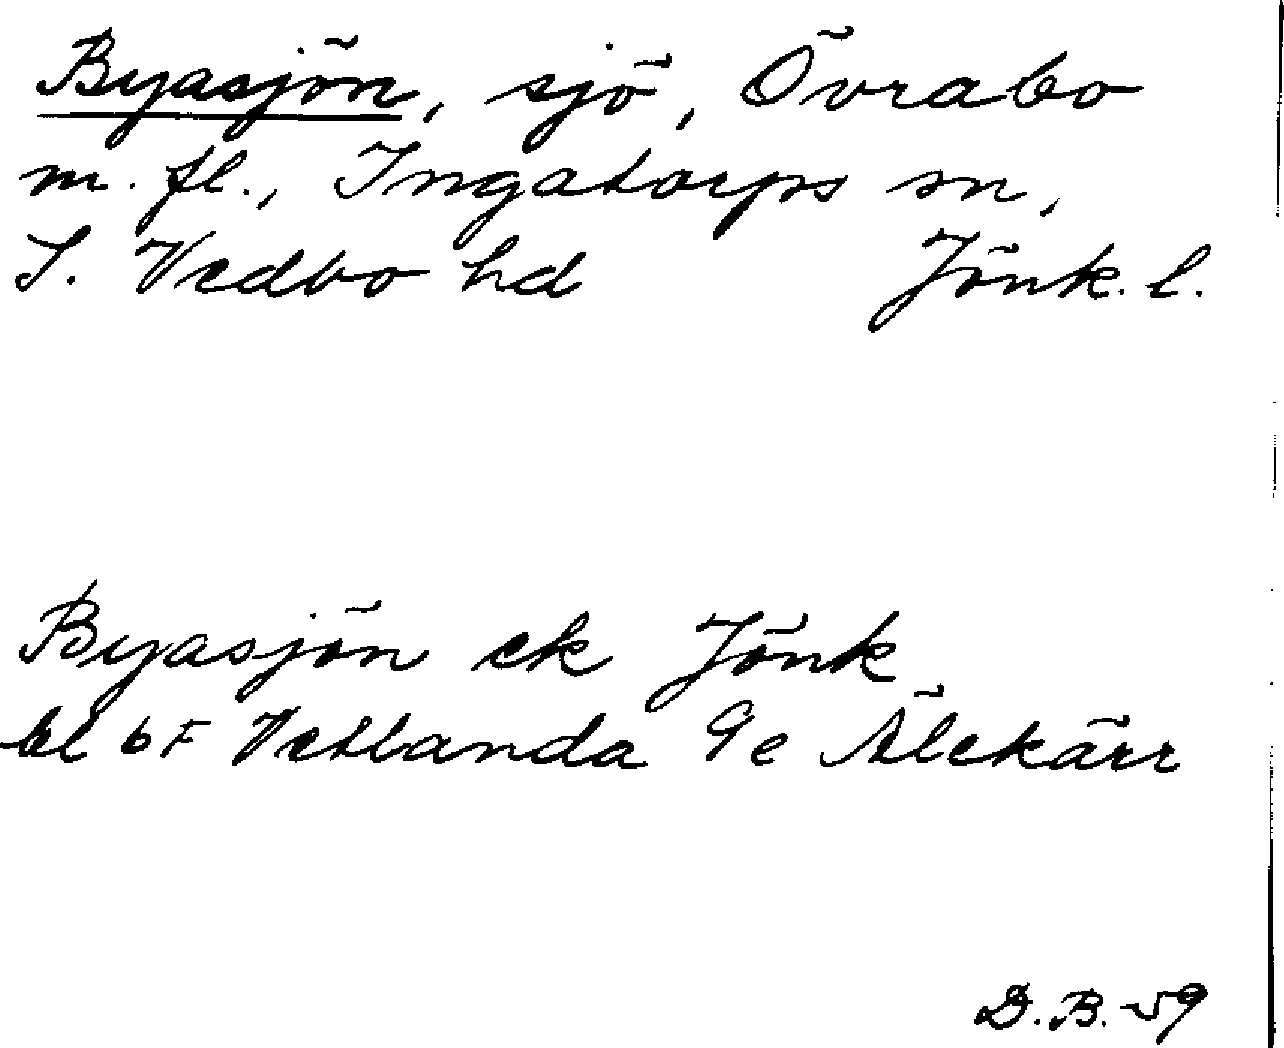 Byasjön, sjö, Övrabo
m. fl., Ingatorps sn,
S. Vedbo hd Jönk. l.
Byasjön ek Jönk
bl 6F Vetlanda 9e Älekärr
D.B. -59